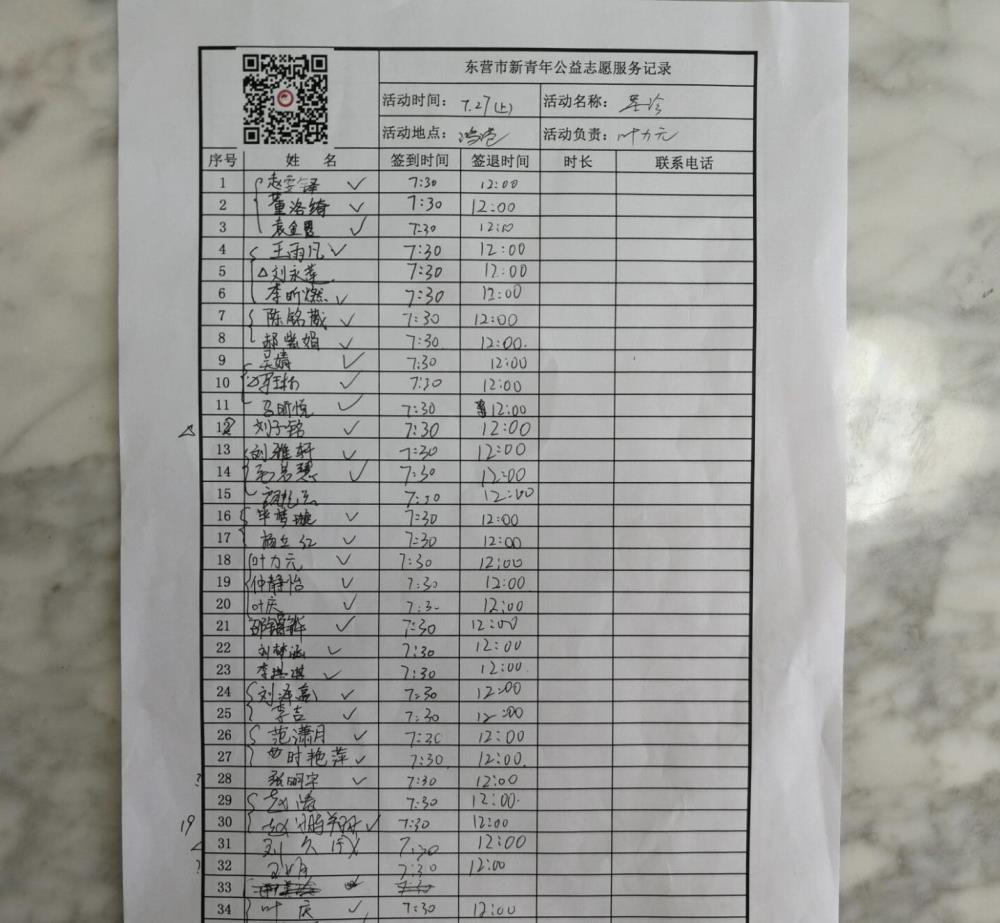 东营市新青年公益志愿服务记录
活动时间： 7.27(上) 活动名称：
活动地点： 活动负责：叶力元
序号 姓 名 签到时间 签退时间 时长 联系电话
1 赵雯铎 ✓ 7:30 12:00
2 董洛绮 ✓ 7:30 12:00
3 袁金 ✓ 7:30 12:00
4 王雨凡 ✓ 7:30 12:00
5 △刘永莲 7:30 12:00
6 李昕燃 ✓ 7:30 12:00
7 陈铭葳 ✓ 7:30 12:00
8 郝紫娟 ✓ 7:30 12:00.
9 吴婧 ✓ 7:30 12:00
10 ✓ 7:30 12:00
11 昕悦 ✓ 7:30 12:00
△ 12 刘子铭 ✓ 7:30 12:00
13 刘雅轩 ✓ 7:30 12:00
14 慧 ✓ 7:30 12:00
15 7:30 12:00
16 毕梦璇 ✓ 7:30 12:00
17 杨 红 ✓ 7:30 12:00
18 叶力元 ✓ 7:30 12:00
19 仲静怡 ✓ 7:30 12:00
20 叶庆 ✓ 7:30 12:00
21 邵 ✓ 7:30 12:00
22 刘梦涵 ✓ 7:30 12:00
23 李 琪 ✓ 7:30 12:00
24 刘泽嘉 ✓ 7:30 12:00
25 李吉 ✓ 7:30 12:00
26 范潇月 ✓ 7:30 12:00
27 时艳萍 ✓ 7:30 12:00
? 28 张明宇 ✓ 7:30 12:00
29 赵 7:30 12:00
19 30 赵 ✓ 7:30 12:00
31 刘久 7:30 12:00
? 32 7:30 12:00
33 7:30
34 叶庆 ✓ 7:30 12:00